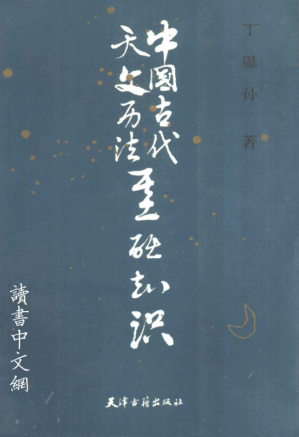 丁緜孙 著
中國古代
天文历法基础知识
天津古籍出版社
讀書中文網